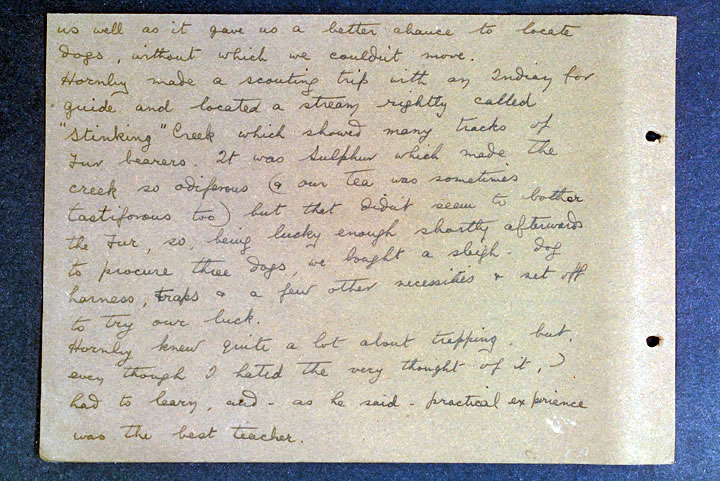 us well as it gave us a better chance to locate
dogs, without which we couldn't move.
Hornby made a scouting trip with an Indian for
guide and located a stream rightly called
"Stinking" Creek which showed many tracks of
Fur bearers. It was Sulphur which made the
creek so odiferous (& our tea was sometimes
tastiforous too) but that didn't seem to bother
the Fur, so, being lucky enough shortly afterwards
to procure three dogs, we bought a sleigh - dog
harness, traps & a few other necessities & set off
to try our luck.
Hornby knew quite a lot about trapping, but,
even though I hated the very thought of it, I
had to learn, and - as he said - practical experience
was the best teacher.